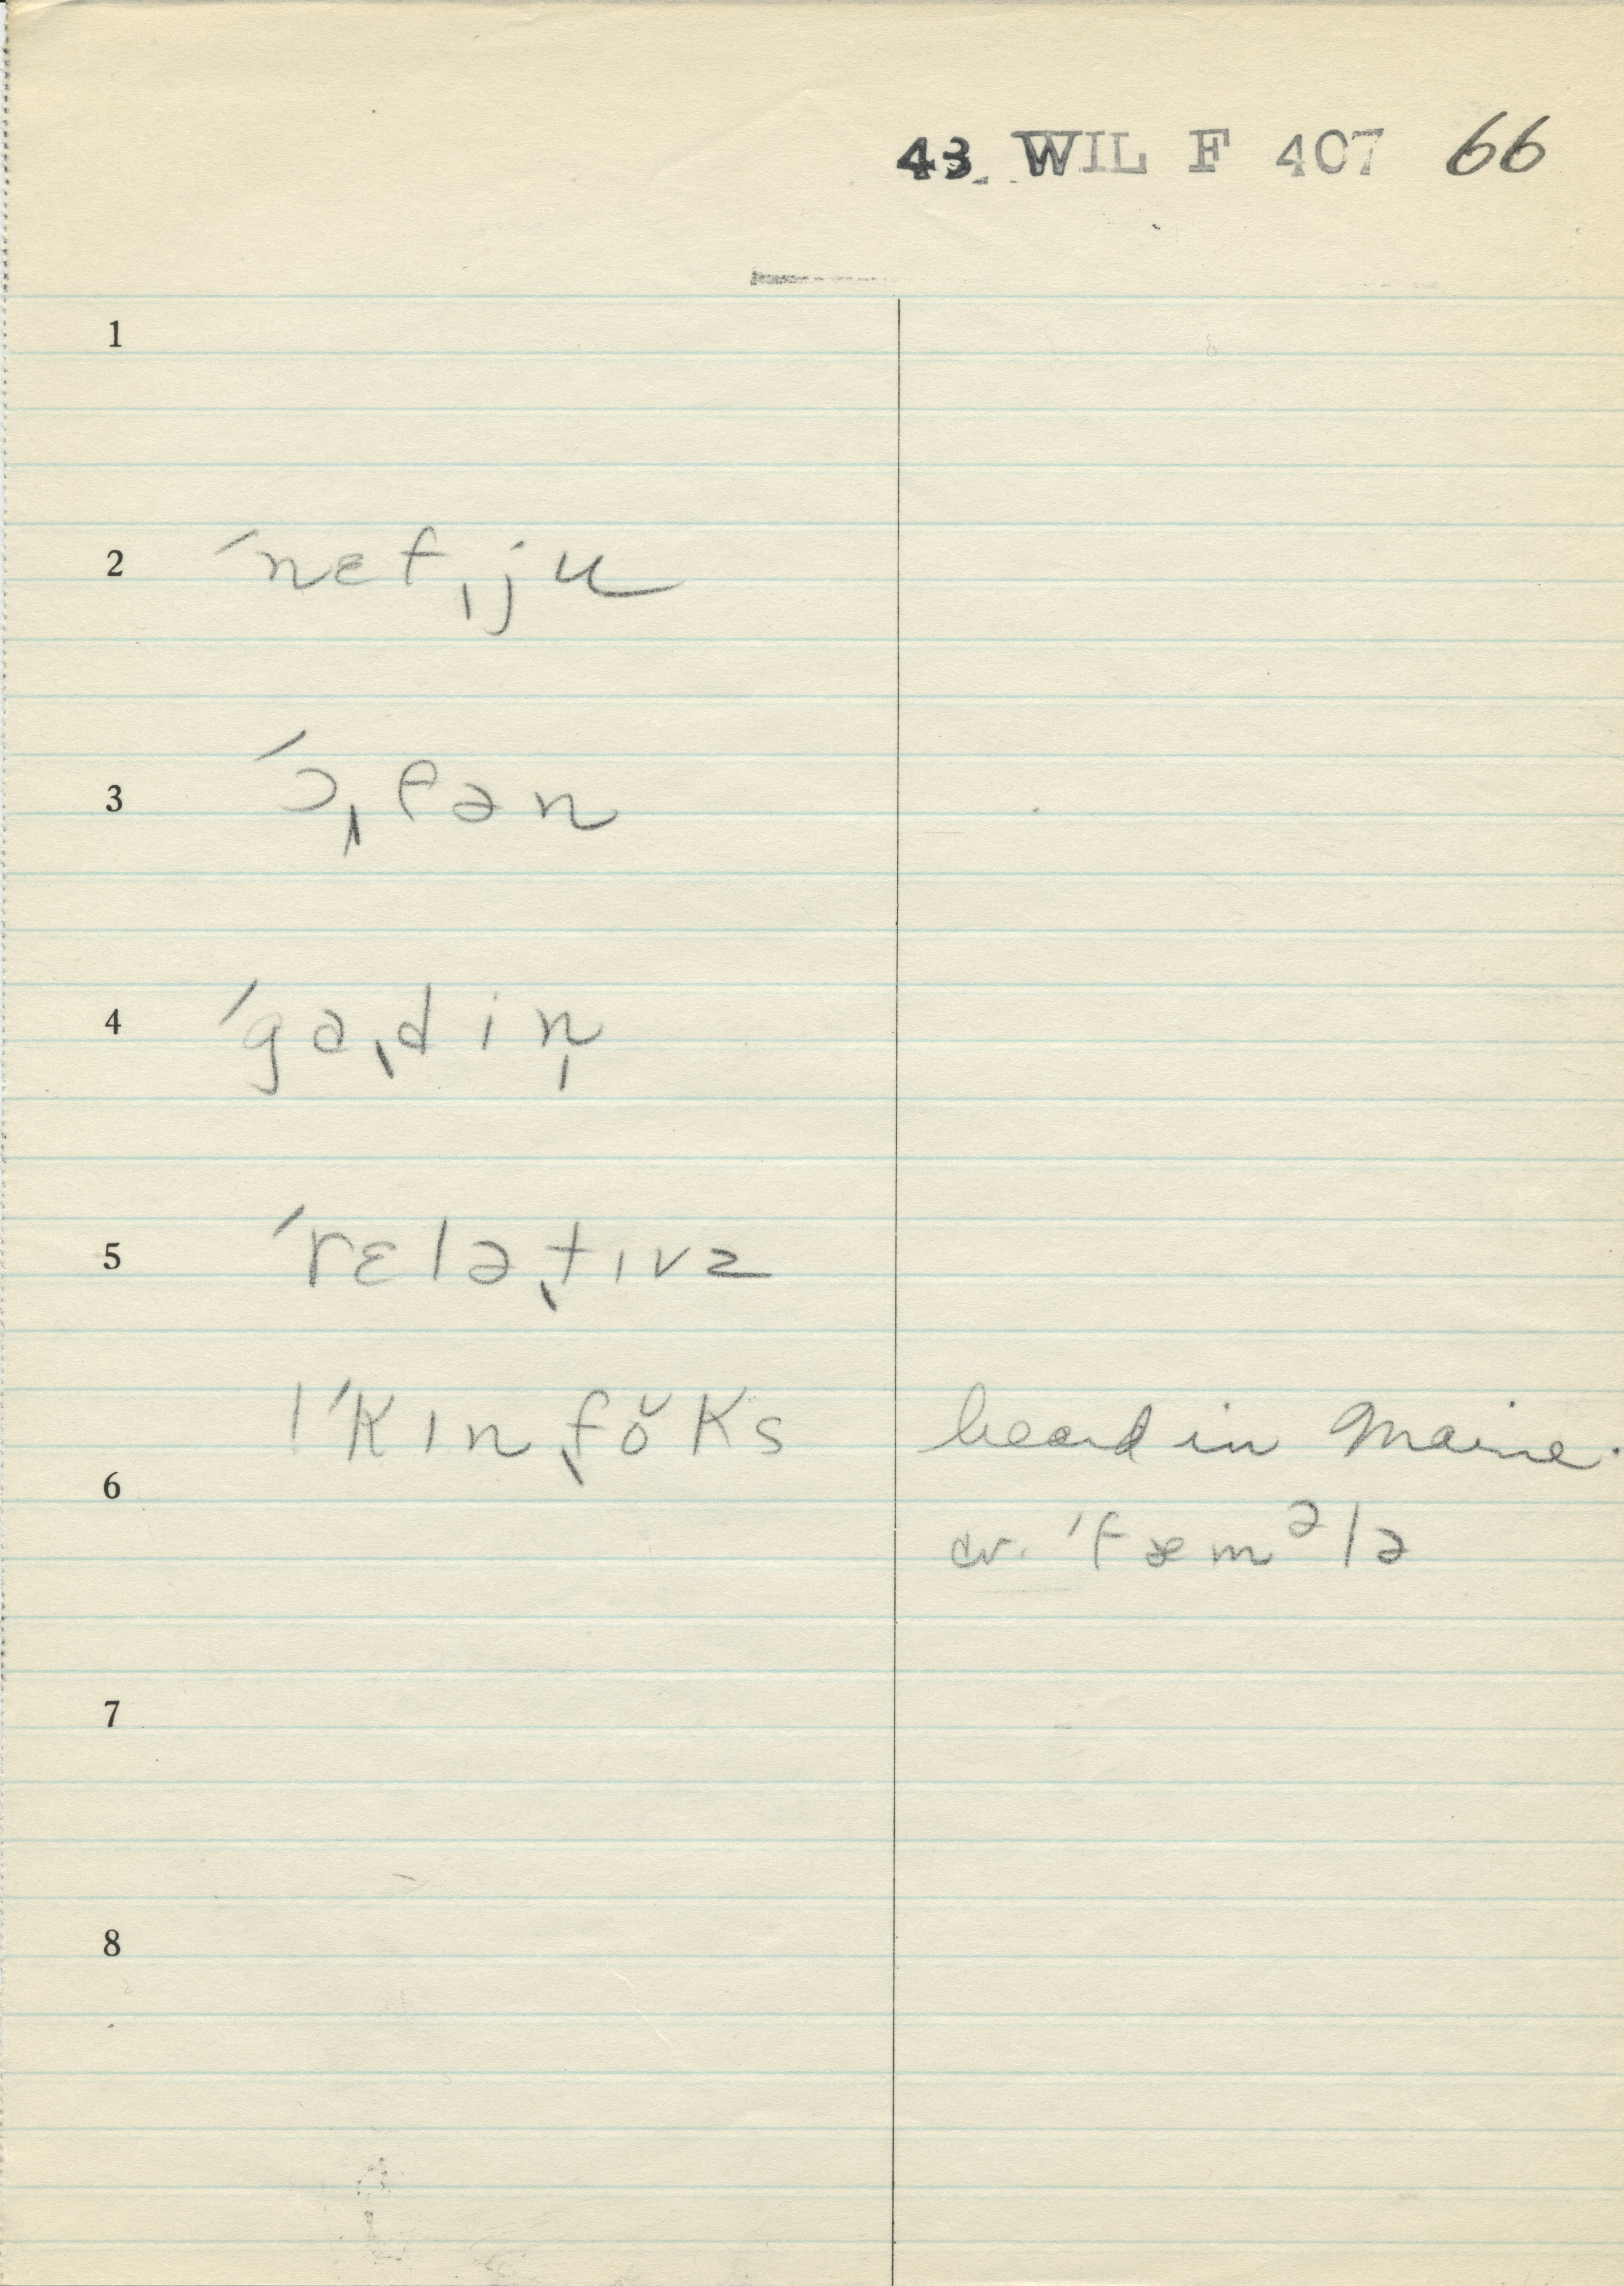 43 WIL F 407 66
1
2 ˊnɛfˌju
3 ˊɔˌfən
4 ˊgaˌdin̩
5 ˊrɛləˌtɪvz
!ˊkɪnˌfŏks heard in Maine.
6
cv. ˊfæmᵊlə
7
8